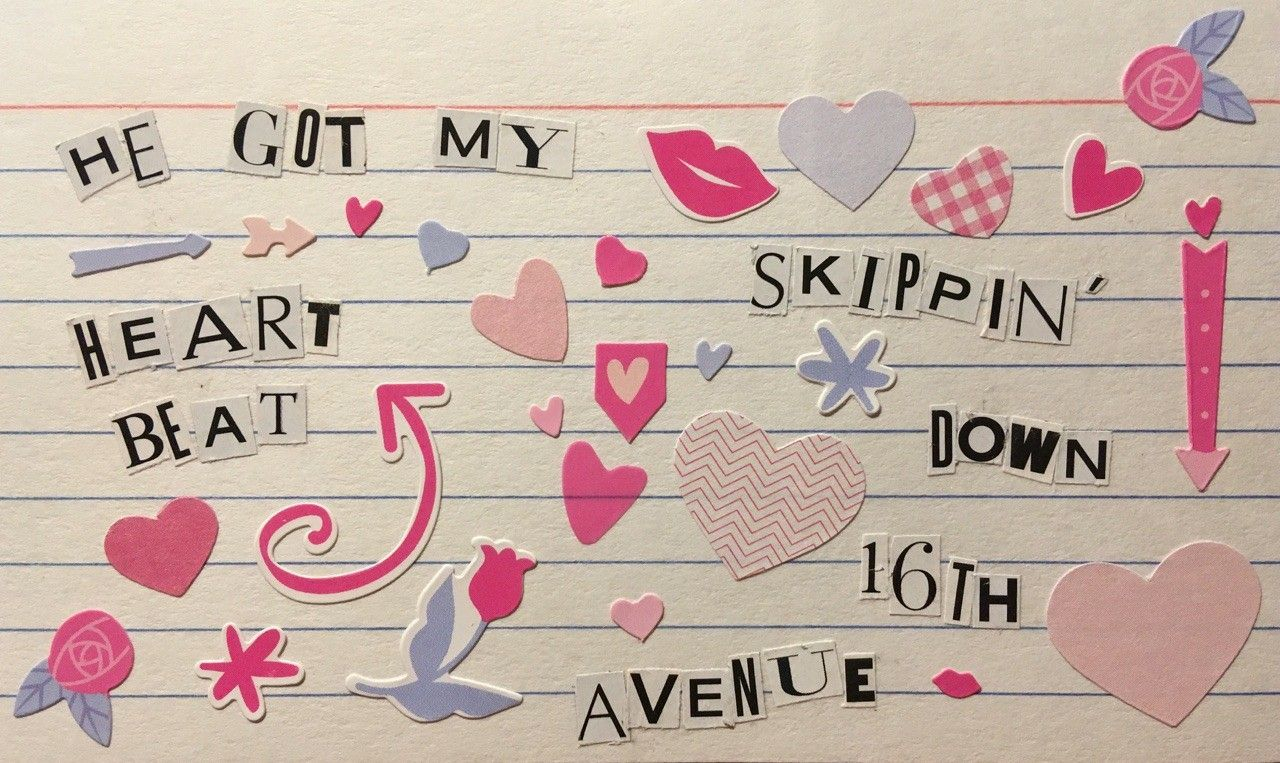 HE GOT MY
HEART
BEAT
SKIPPIN'
DOWN
16TH
AVENUE